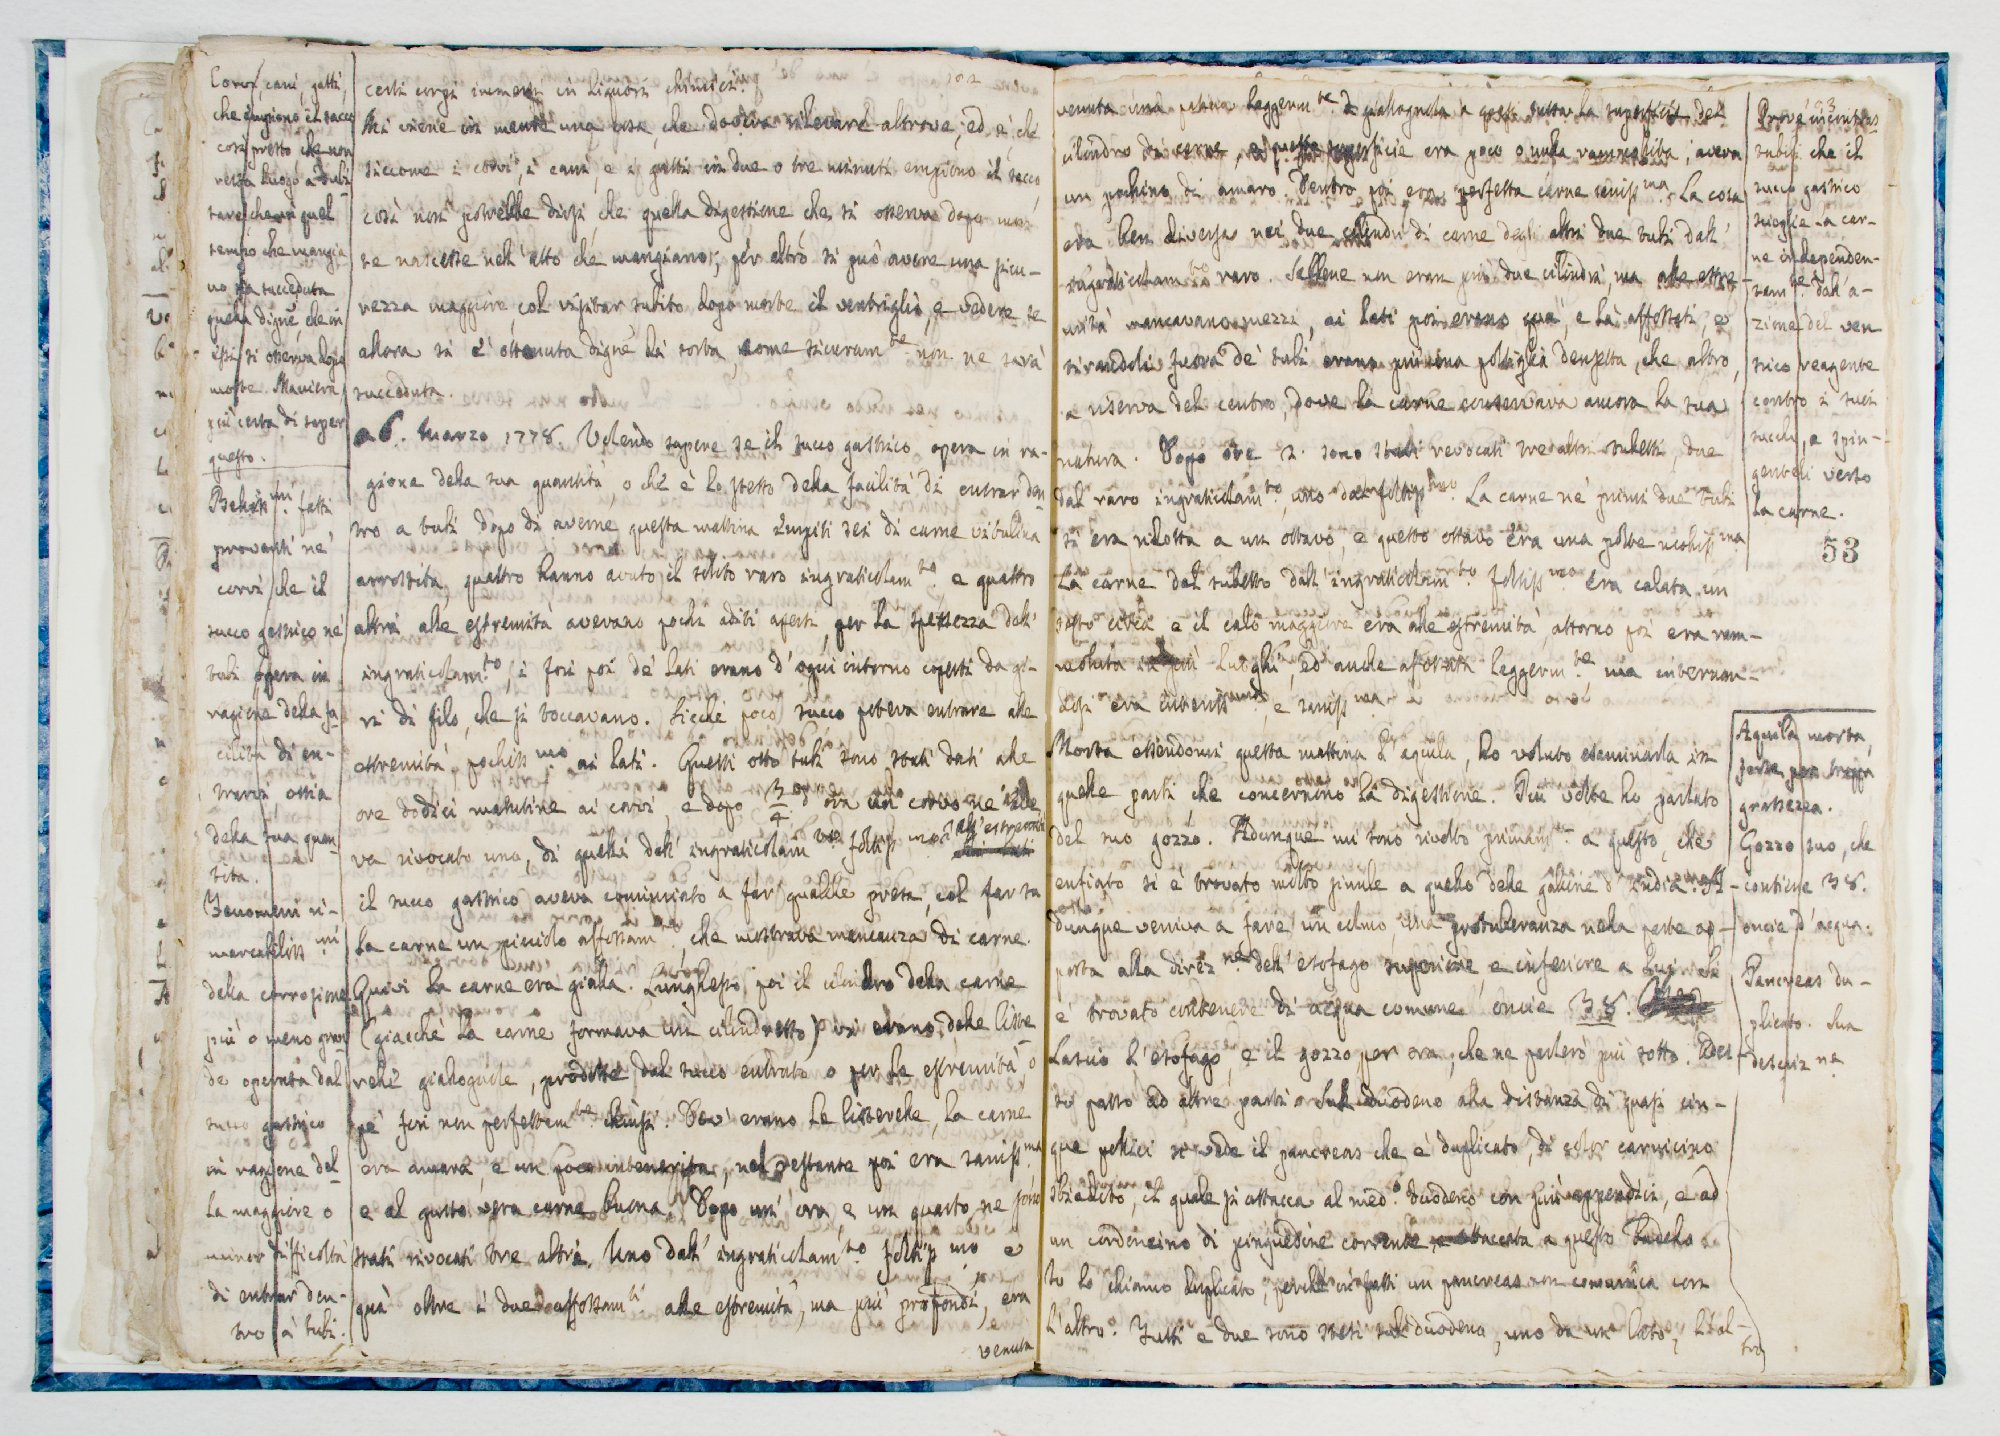 Corvi, cani, gatti,
che empiono il sacco
così presto che non
resta luogo a dubi
tare che in quel
tempo che mangia
no sia succeduta
quella digne, che in
essi si osserva dopo
morte. Maniera
più certa di saper
questo.
Bellissmi fatti
provanti ne'
corvi che il
succo gastrico ne'
tubi opera in
ragione della fa
cilità di en-
trarvi, ossia
della sua quan
tità.
Fenomeni ri-
marcabiliss mi
della corrosione
più o meno gran
de operata dal
succo gastrico
in ragione del
la maggiore o
minor difficoltà
di entrar den-
tro a' tubi.
102
certi corpi immersi in liquori chimici.
Mi viene in mente una cosa, che doveva rilevare altrove, ed è, che
siccome i corvi, i cani, e i gatti in due o tre minuti empiono il sacco,
così non potrebbe dirsi che quella digestione che si osserva dopo mor
te nascesse nell'atto che mangiano; per altro si può avere una sicu-
rezza maggiore col visitar subito dopo morte il ventriglio, e vedere se
allora si è ottenuta digne di sorta, come sicuramte non ne sarà
succeduta.
a 6. Marzo 1778. Volendo sapere se il succo gastrico opera in ra-
gione della sua quantità, o ch'è lo stesso della facilità di entrar den
tro a tubi dopo di averne questa mattina empiti sei di carne vitulina
arrostita, quattro hanno avuto il solito raro ingraticolamto, e quattro
altri alle estremità avevano pochi aditi aperti, per la spessezza dell'
ingraticolamto, i fori poi de' lati erano d'ogni intorno coperti da gi-
ri di filo, che si toccavano. Sicché poco succo poteva entrare alle
estremità, pochissmo ai lati. Questi otto tubi sono stati dati alle
ore dodici matutine ai corvi, e dopo 3/4 d'ora un corvo ne
va rivocato uno, di quelli dell'ingraticolamto foltissmo. all'estremità
il succo gastrico aveva cominciato a far qualche presa, col far sa
la carne un picciolo affossamto che mostrava mancanza di carne.
Quivi la carne era gialla. Lunghesso poi il cilindro della carne
(giacché la carne formava un cilindretto) vi erano delle liste
relle giallognole, prodotte dal succo entrato o per le estremità o
pe' fori non perfettamte chiusi. Dov'erano le listerelle, la carne
era amara, e un poco intenerita, nel restante poi era sanissma
e al gusto vera carne buona. Dopo un'ora, e un quarto ne sono
stati rivocati tre altri. Uno dall'ingraticolamto foltissmo, e
quà oltre i due affossamti alle estremità, ma più profondi, era
venuta
venuta una patina leggermte di giallognola a quasi tutta la superficie del
cilindro di carne, e questa superficie era poco o nulla rammollita, aveva
un pochino di amaro. Dentro poi era perfetta carne sanissma. La cosa
era ben diversa nei due cilindri di carne degli altri due tubi dall'
ingraticolamto raro. Sebbene non eran più due cilindri, ma alle estre-
mità mancavano pezzi, ai lati poi erano quà, e là affossati, e
tirandoli fuora de' tubi erano più una poltiglia densetta, che altro,
a riserva del centro, dove la carne conservava ancora la sua
natura. Dopo ore 2. sono stati revocati tre altri tubetti, due
dal raro ingraticolamto, uno dal foltissmo. La carne ne' primi due tubi
si era ridotta a un ottavo, e questo ottavo era una polte mollissma
La carne del tubetto dall'ingraticolamto foltissmo era calata un
sesto circa e il calo maggiore era alle estremità, attorno poi era ram-
mollita in più luoghi, ed anche affossata leggermte ma internan-
dosi era durissima, e sanissma.
Morta essendomi questa mattina l'aquila, ho voluto esaminarla in
quelle parti, che concernono la digestione. Più volte ho parlato
del suo gozzo. Adunque mi sono rivolto primamte a questo, che
enfiato si è trovato molto simile a quello delle galline d'India. A-
dunque veniva a fare un colmo, una protuberanza nella parte op-
posta alla direzne dell'esofago superiore, e inferiore a lui. Si
è trovato contenere di acqua comune oncie 38.
Lascio l'esofago, e il gozzo per ora, che ne parlerò più sotto. Del
to passo ad altre parti. Sul duodeno alla distanza di quasi cin-
que pollici si vede il pancreas che è duplicato, di color carnicino
sbiadito, il quale si attacca al medo duodeno con più appendici, e ad
un cordoncino di pinguedine corrente, e attaccata a questo budello
Io lo chiamo duplicato, perché in fatti un pancreas non comunica con
l'altro. Tutti e due sono stesi sul duodeno, uno da un lato, l'al-
tro
93
Prove incontras
tabili che il
succo gastrico
scioglie la car-
ne independen-
temte dall'a-
zione del ven
trico reagente
contro i suoi
succhi, e spin-
gentili verso
la carne.
53
Aquila morta,
forse per troppa
grassezza.
Gozzo suo, che
contiene 38.
oncie d'acqua.
Pancreas du-
plicato. Sua
descriz ne